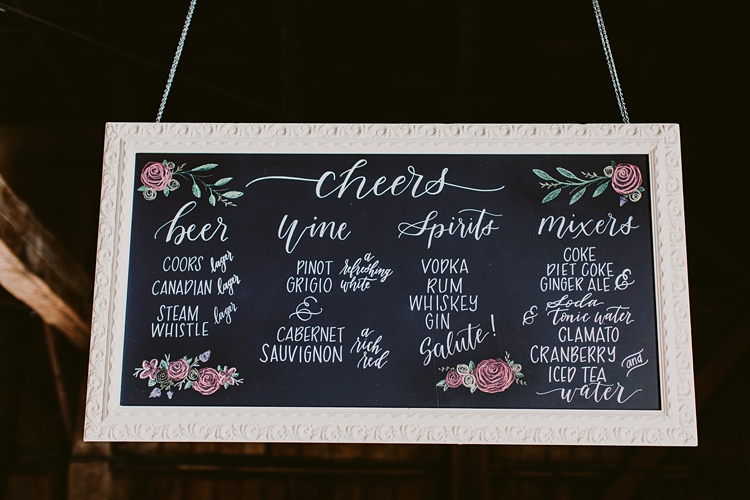 cheers
beer
COORS lager
CANADIAN lager
STEAM
WHISTLE lager
wine
PINOT
GRIGIO
a
refreshing
white
&
CABERNET
SAUVIGNON
a
rich
red
Spirits
VODKA
RUM
WHISKEY
GIN
Salute!
mixers
COKE
DIET COKE
GINGER ALE &
Soda
& tonic water
CLAMATO
CRANBERRY
ICED TEA and
water